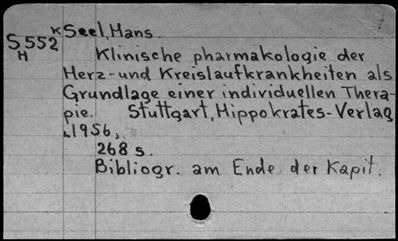 7
K Seel, Hans.
S 552
H
Klinische pharmakologie der
Herz- und Kreislaufkrankheiten als
Grundlage einer individuellen Thera-
pie. Stuttgart, Hippokrates-Verlag
1956,
268 s.
Bibliogr. am Ende der Kapit.